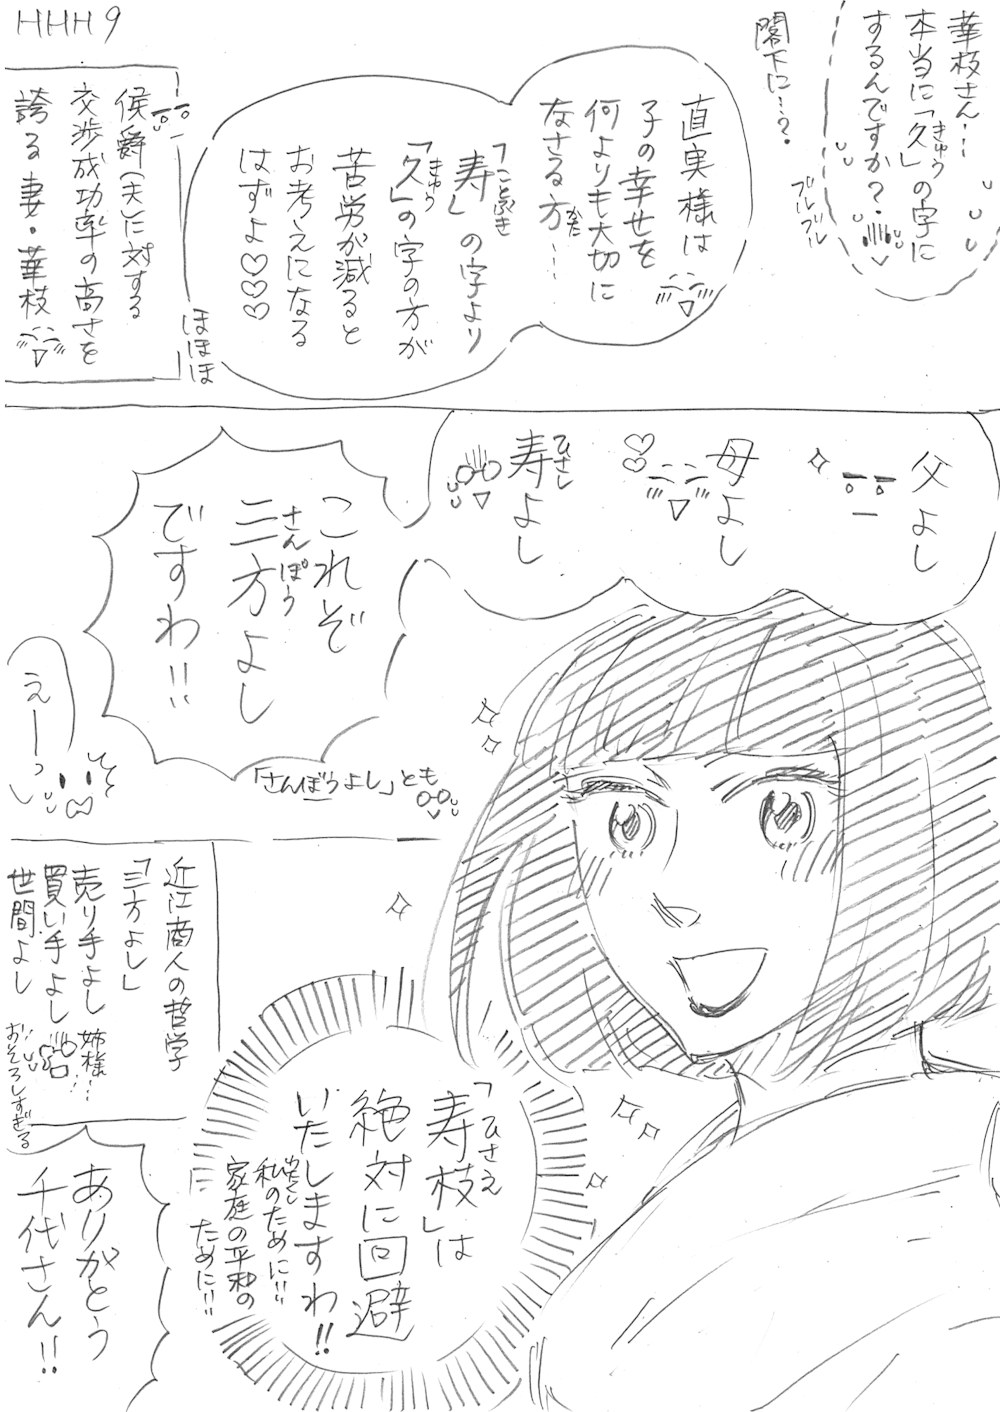 HHH9
華枝さん…
本当に「久」の字に
きゅう
するんですか?
閣下に…?
ブルブル
直実様は
子の幸せを
何よりも大切に
なさる方…
かた
「寿」の字より
ことぶき
「久」の字の方が
きゅう
苦労が減ると
お考えになる
はずよ♡♡♡
ほほほ
侯爵(夫)に対する
交渉成功率の高さを
誇る妻・華枝
父よし
母よし
寿よし
ひさし
これぞ
三方よし
さんぽう
ですわ!!
「さんぼうよし」とも
えーっ
近江商人の哲学
「三方よし」
売り手よし
買い手よし
世間よし
姉様…
おそろしすぎる
「寿枝」は
ひさえ
絶対に回避
いたしますわ!!
私のために!!
わたくし
家庭の平和の
ために!!
ありがとう
千代さん!!